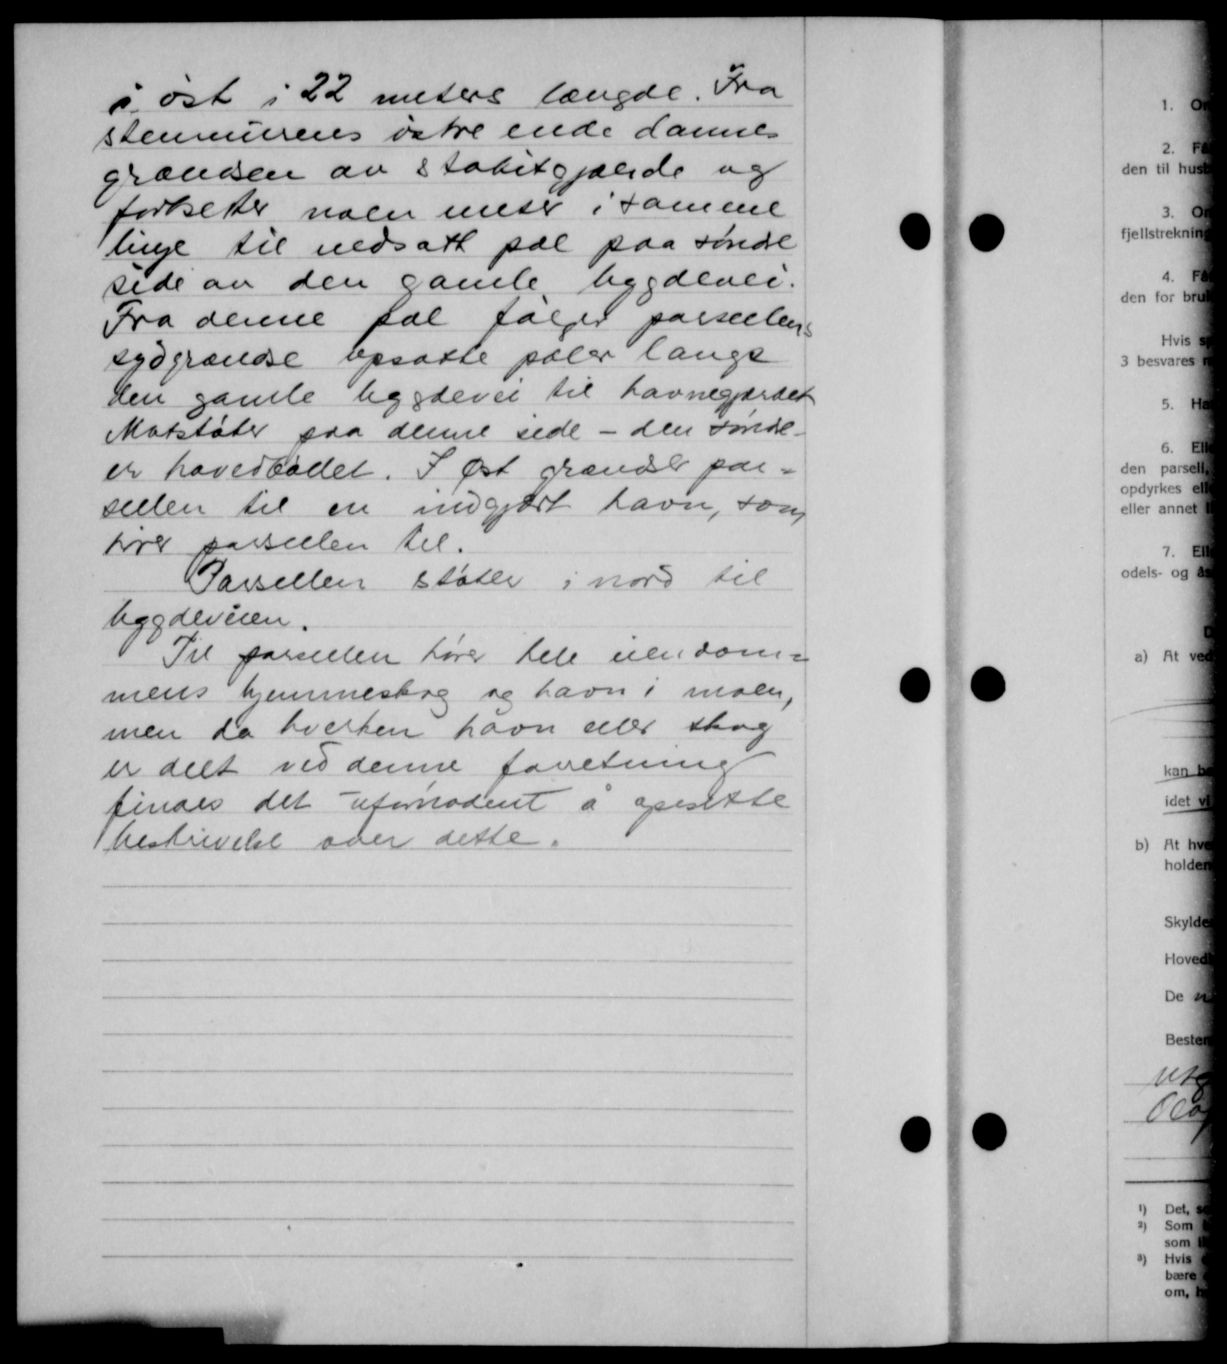 i øst i 22 meters længde. Fra
stenmurens østre ende dannes
grændsen av stakitgjærde og
fortsetter noen meter i samme
linje til nedsatt pæl paa søndre
side av den gamle bygdevei.
Fra denne pæl følger parsellens
sydgrændse opsatte pæler langs
den gamle bygdevei til havnegjærdet
Motstøter paa denne side - den søndre -
er hovedbølet. I øst grændser par=
sellen til en indgjært havn, som
hører parsellen til.
Parsellen støter i nord til
bygdeveien.
Til parsellen hører hele eiendom=
mens hjemmeskog og havn i moen,
men da hverken havn eller skog
er delt ved denne forretning
findes det ufornødent å opsette
beskrivelse over dette.
1. On
2. Få
den til husb
3. On
fjellstrekning
4. Få
den for bruk
Hvis sp
3 besvares
5. Ha
6. Elle
den parsell,
opdyrkes elle
eller annet
7. Elle
odels- og ås
D
a) At ved
kan be
idet vi
b) At hve
holden
Skylde
Hoved
De
Bestem
utg
Olaf
1) Det, so
2) Som
som
3) Hvis
bære
om, h